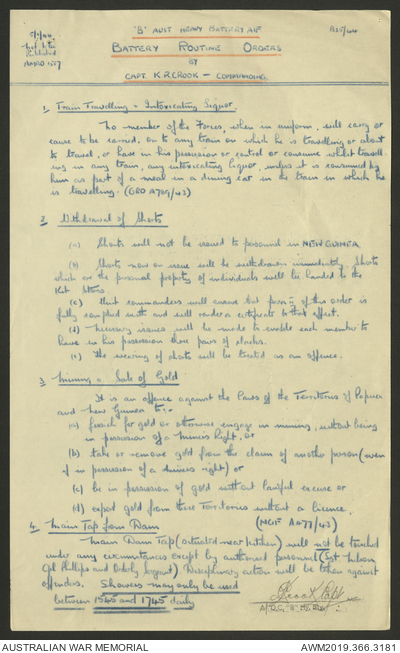 "B" AUST HEAVY BATTERY AIF
B25/44
5/1/44
BATTERY ROUTINE ORDERS
BY
CAPT. K.R. CROOK - COMMANDING.
1. Train Travelling - Intoxicating Liquor.
No member of the Forces, when in uniform, will carry or
cause to be carried, on to any train on which he is travelling or about
to travel, or have in his possession or control or consume whilst travell
ing in any train, any intoxicating liquor, unless it is consumed by
him as part of a meal in a dining car in the train in which he
is travelling. (GRO A705/43)
2. Withdrawal of Shorts
(a) Shorts will not be issued to personnel in NEW GUINEA
(b) Shorts now on issue will be withdrawn immediately. Shorts
which are the personal property of individuals will be handed to the
Kit Store.
(c) Unit commanders will ensure that of this order is
fully complied with and will render a certificate to that effect.
(d) Necessary issues will be made to enable each member to
have in his possession three pairs of slacks.
(e) The wearing of shorts will be treated as an offence.
3. Mining & Sale of Gold
It is an offence against the Laws of the Territories of Papua
and New Guinea to:-
(a) search for gold or otherwise engage in mining, without being
in possession of a Miners Right, or
(b) take or remove gold from the claim of another person (even
if in possession of a miners right) or
(c) be in possession of gold without lawful excuse or
(d) export gold from these Territories without a licence.
(NGF A477/43)
4. Main Tap from Dam
Main Dam Tap (situated near kitchen) will not be touched
under any circumstances except by authorised personnel (Sgt
Cpl Phillips and Orderly Sergeant). Disciplinary action will be taken against
offenders. Showers may only be used
between 1545 and 1745 daily
AUSTRALIAN WAR MEMORIAL
AWM2019.366.3181